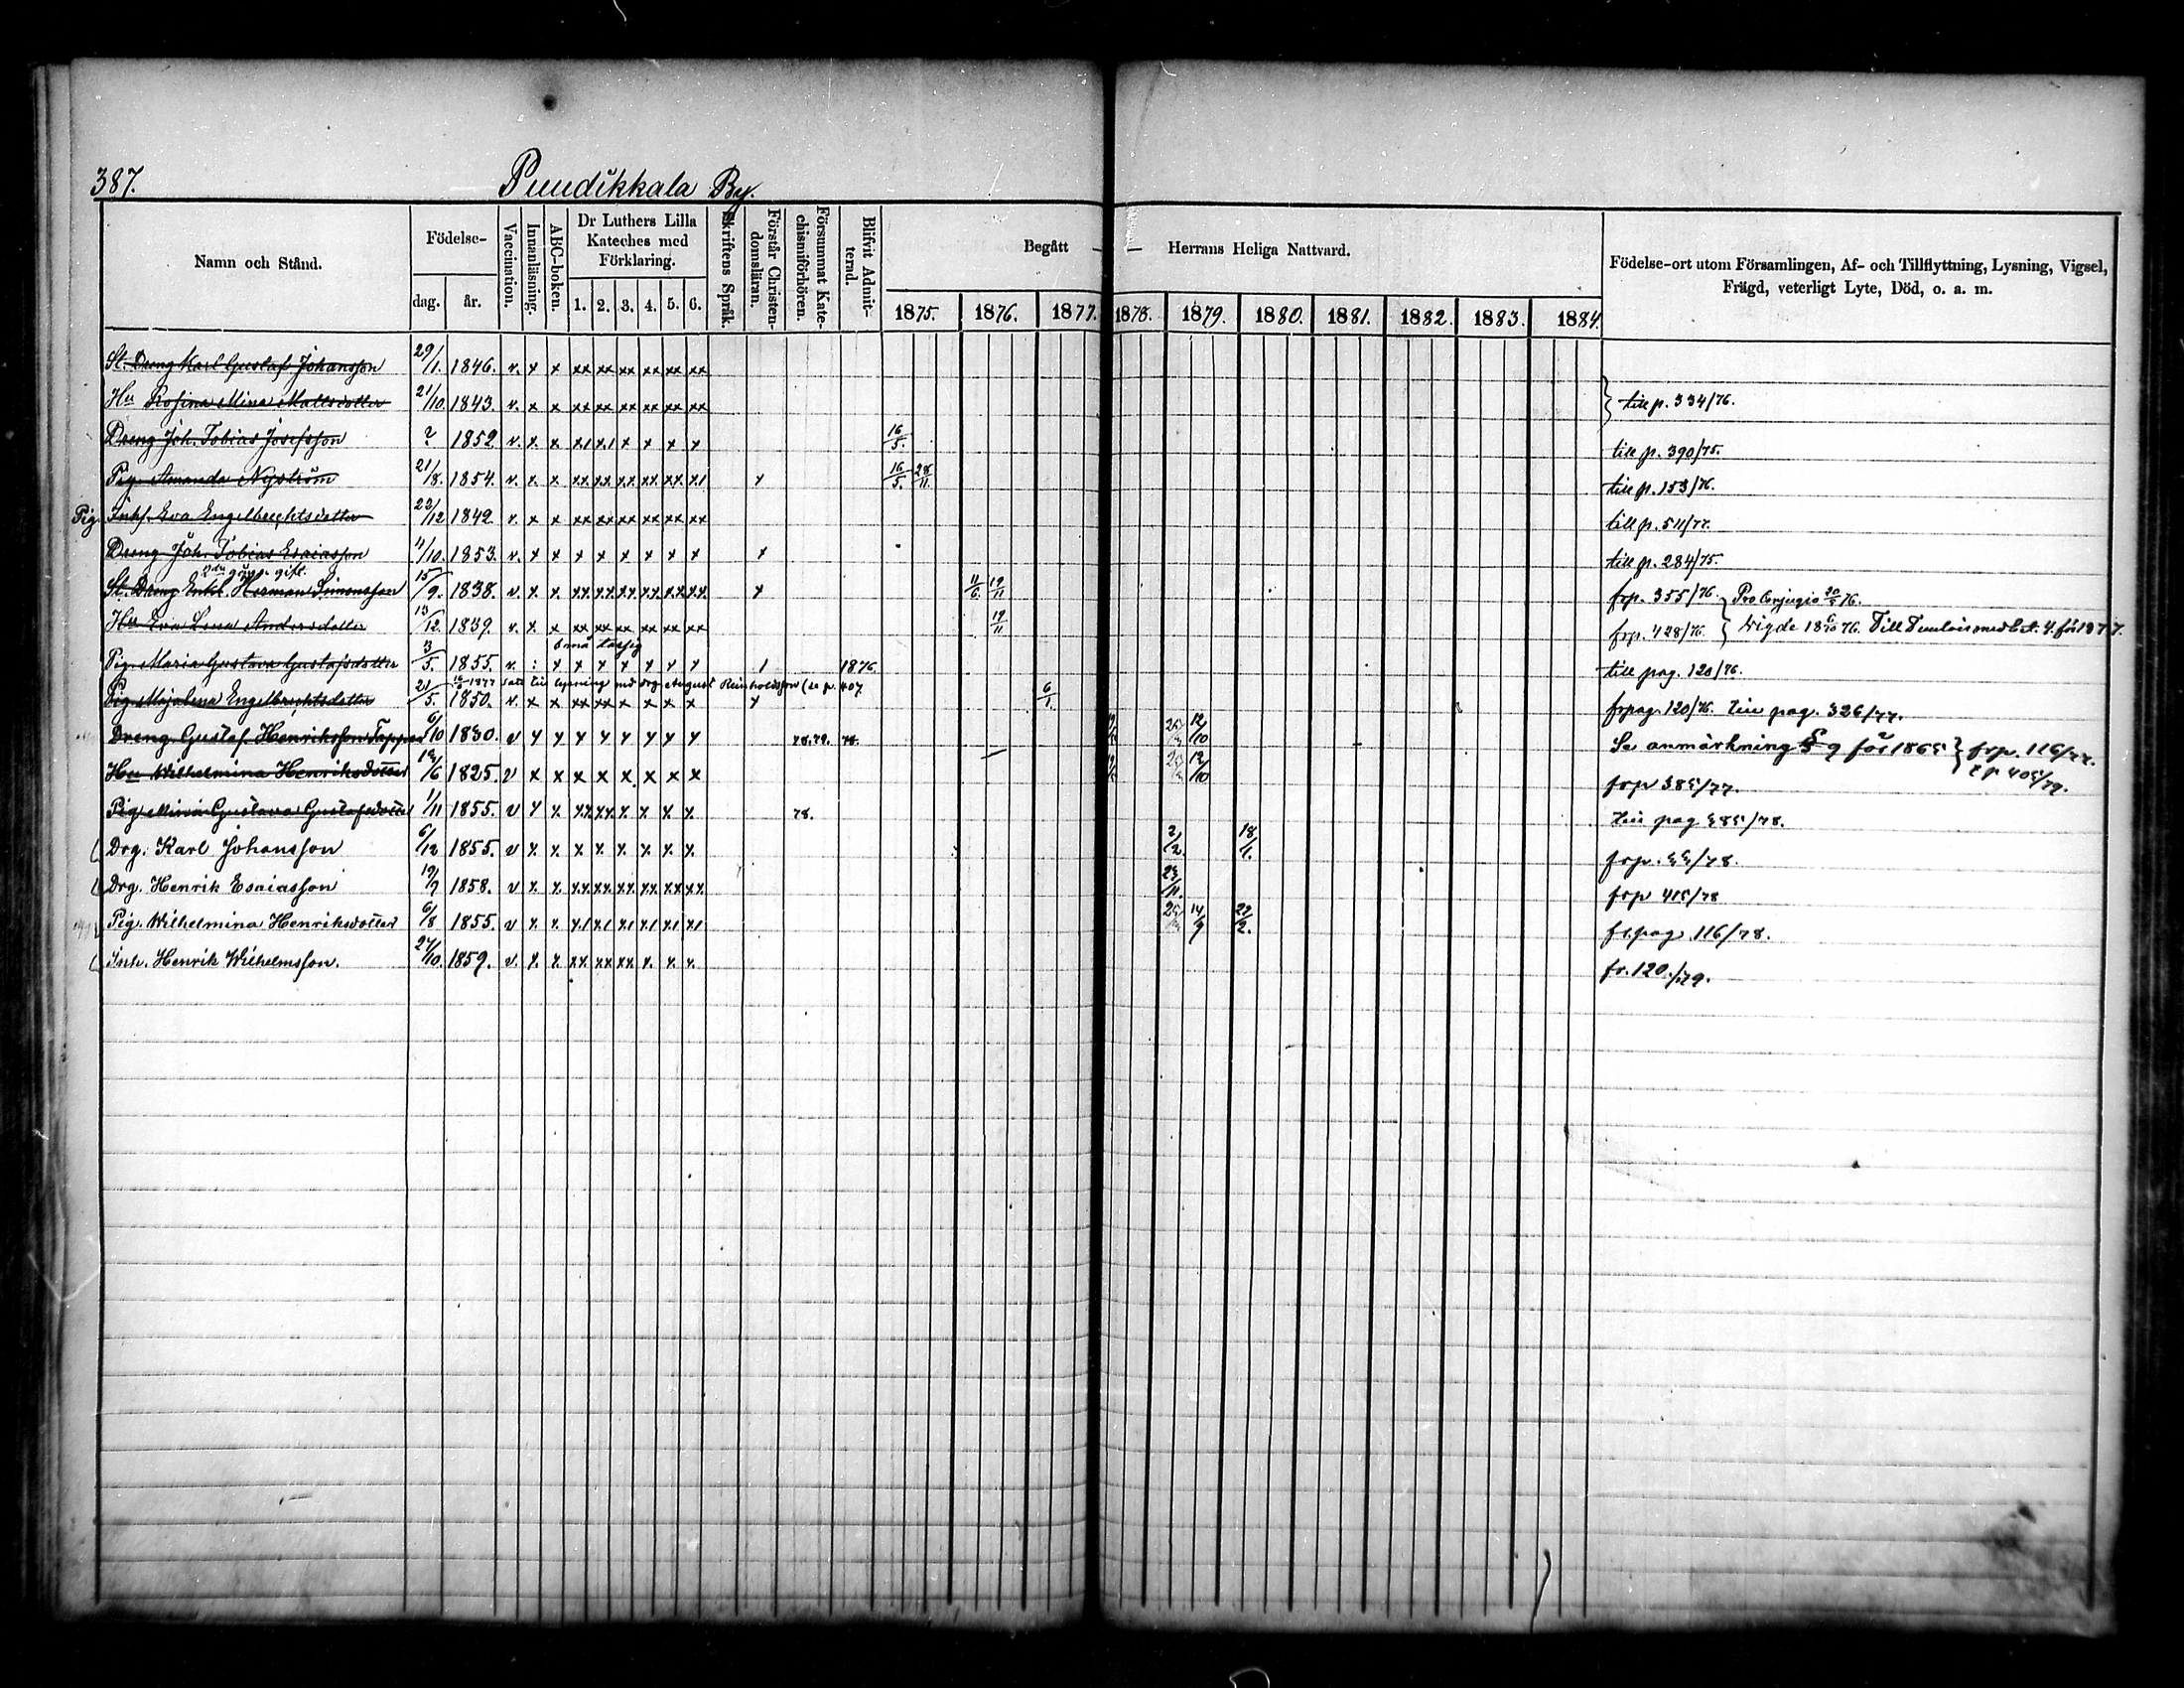 387.
Puudikkala By.
Namn och Stånd.
Födelse-
dag.
år.
Vaccination.
Innanläsning.
ABC-boken.
Dr Luthers Lilla
Kateches med
Förklaring.
1. 2. 3. 4. 5. 6.
Skriftens Språk.
Förstår Christen-
domsläran.
Försummat Kate-
chismiförhören.
Blifvit Admit-
terad.
Begått — — Herrans Heliga Nattvard.
1875. 1876. 1877. 1878. 1879. 1880. 1881. 1882. 1883. 1884.
Födelse-ort utom Församlingen, Af- och Tillflyttning, Lysning, Vigsel,
Frägd, veterligt Lyte, Död, o. a. m.
St. Dreng Karl Gustaf Johansson 29/1. 1846. v. x x xx xx xx xx xx xx
Hu Rosina Mina Mattsdotter 21/10. 1843. v. x x xx xx xx xx xx xx } till p. 334/76.
Dreng Joh. Tobias Josefsson ? 1852 v. x. x x1 x1 x x x x 16/5. till p. 390/75.
Pig. Amanda Nyström 21/8. 1854. v. x. x xx xx xx xx xx x1 x 16/5. 28/11. till p. 153/76.
Pig. Inhs. Eva Engelbrechtsdotter 23/12 1842. v. x x xx xx xx xx xx xx till p. 511/77.
Dreng Joh. Tobias Esaiasson 4/10. 1853. v. x x x x x x x x x till p. 284/75.
2dra gång. gift.
St. Dreng Enkl. Herman Simonsson 15/9. 1838. v. x. x. xx xx xx xx xx xx. x 11/6 19/11 frp. 355/76. } Pro Conjugio 20/5 76.
Hu Eva Lena Andersdotter 13/12. 1839. v. x. x xx xx xx xx xx xx 19/11 frp. 428/76. } Vigde 76. Till Tenlois med bet. 4. för 1877.
Pig. Maria Gustava Gustafsdotter 3/5. 1855. v. : x x x x x x x 1 1876. till pag. 120/76.
1877 till lysning med drg August Reinholdsson (se p. 407
Pig. Majalena Engelbrechtsdotter 21/5. 1850. v. x x xx xx x x x x x 6/1. frpag. 120/76. till pag. 326/77.
Dreng. Gustaf Henriksson Tapper 6/10 1830. v x x x x x x x x 78.79. 78. 12/10 Se anmärkning § 9 för 1865 } frp. 116/77.
Hu Wilhelmina Henriksdotter 12/6 1825. v x x x x x x x x 12/10 frp 385/77. t p 405/79.
Pig Maria Gustava Gustafsdotter 1/11 1855. v x x. xx xx x. x. x. x. 78. till pag 385/78.
Drg. Karl Johansson 6/12 1855. v x. x. x x. x. x. x. x. 2/2. 18/1. frp. /78.
Drg. Henrik Esaiasson 19/9 1858. v x. x. xx xx. xx. xx. xx xx. 23/11. frp 415/78
Pig. Wilhelmina Henriksdotter 6/8 1855. v x. x. x1 x1 x1 x1 x1 x1 14/9 22/2. fr.pag. 116/78.
Inh. Henrik Wilhelmsson. 27/10. 1859. v. x. x. xx xx xx. x. x. x. fr. 120./79.